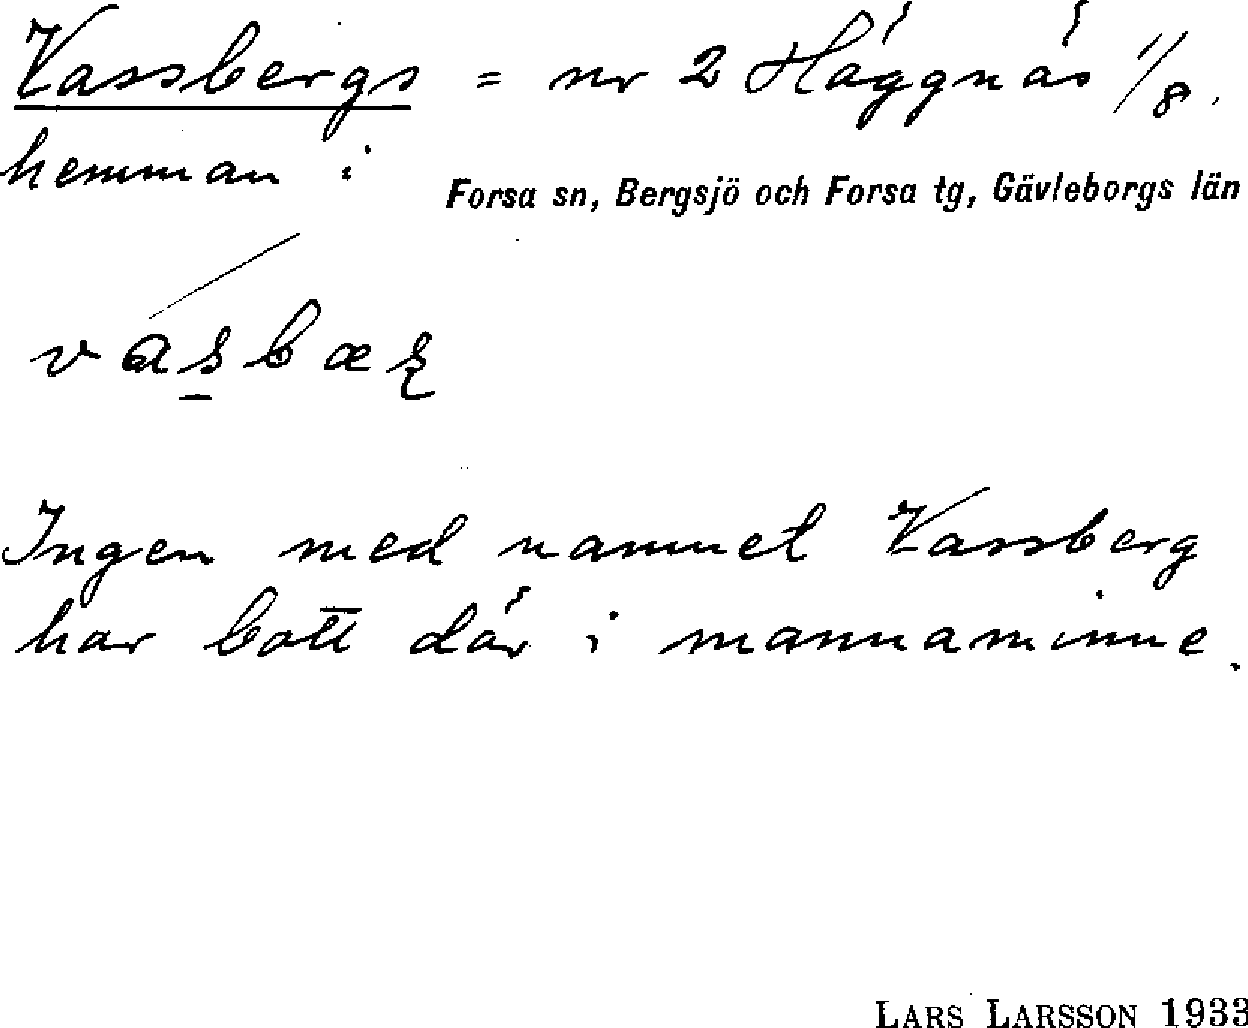 Vassbergs = nr 2 Häggnäs 1/8.
hemman i
Forsa sn, Bergsjö och Forsa tg, Gävleborgs län
Ingen med namnet Vassberg
har bott där i mannaminne.
LARS LARSSON 1933